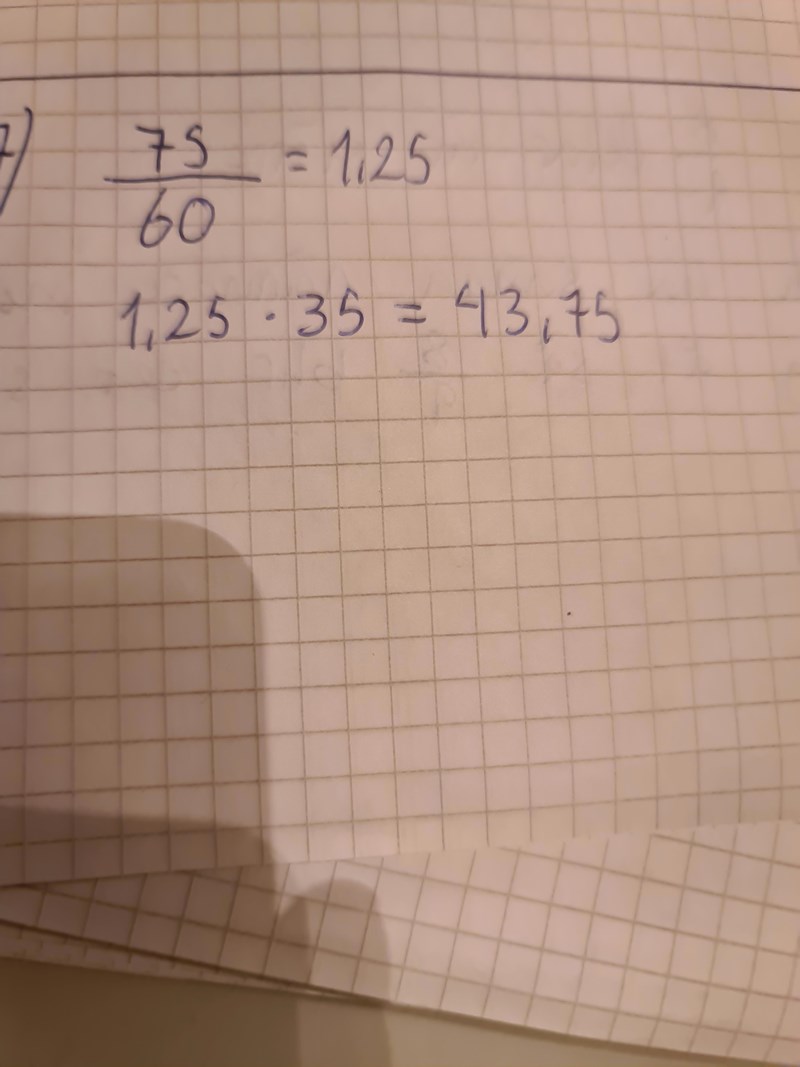 7)
75
60
= 1,25
1,25 · 35 = 43,75